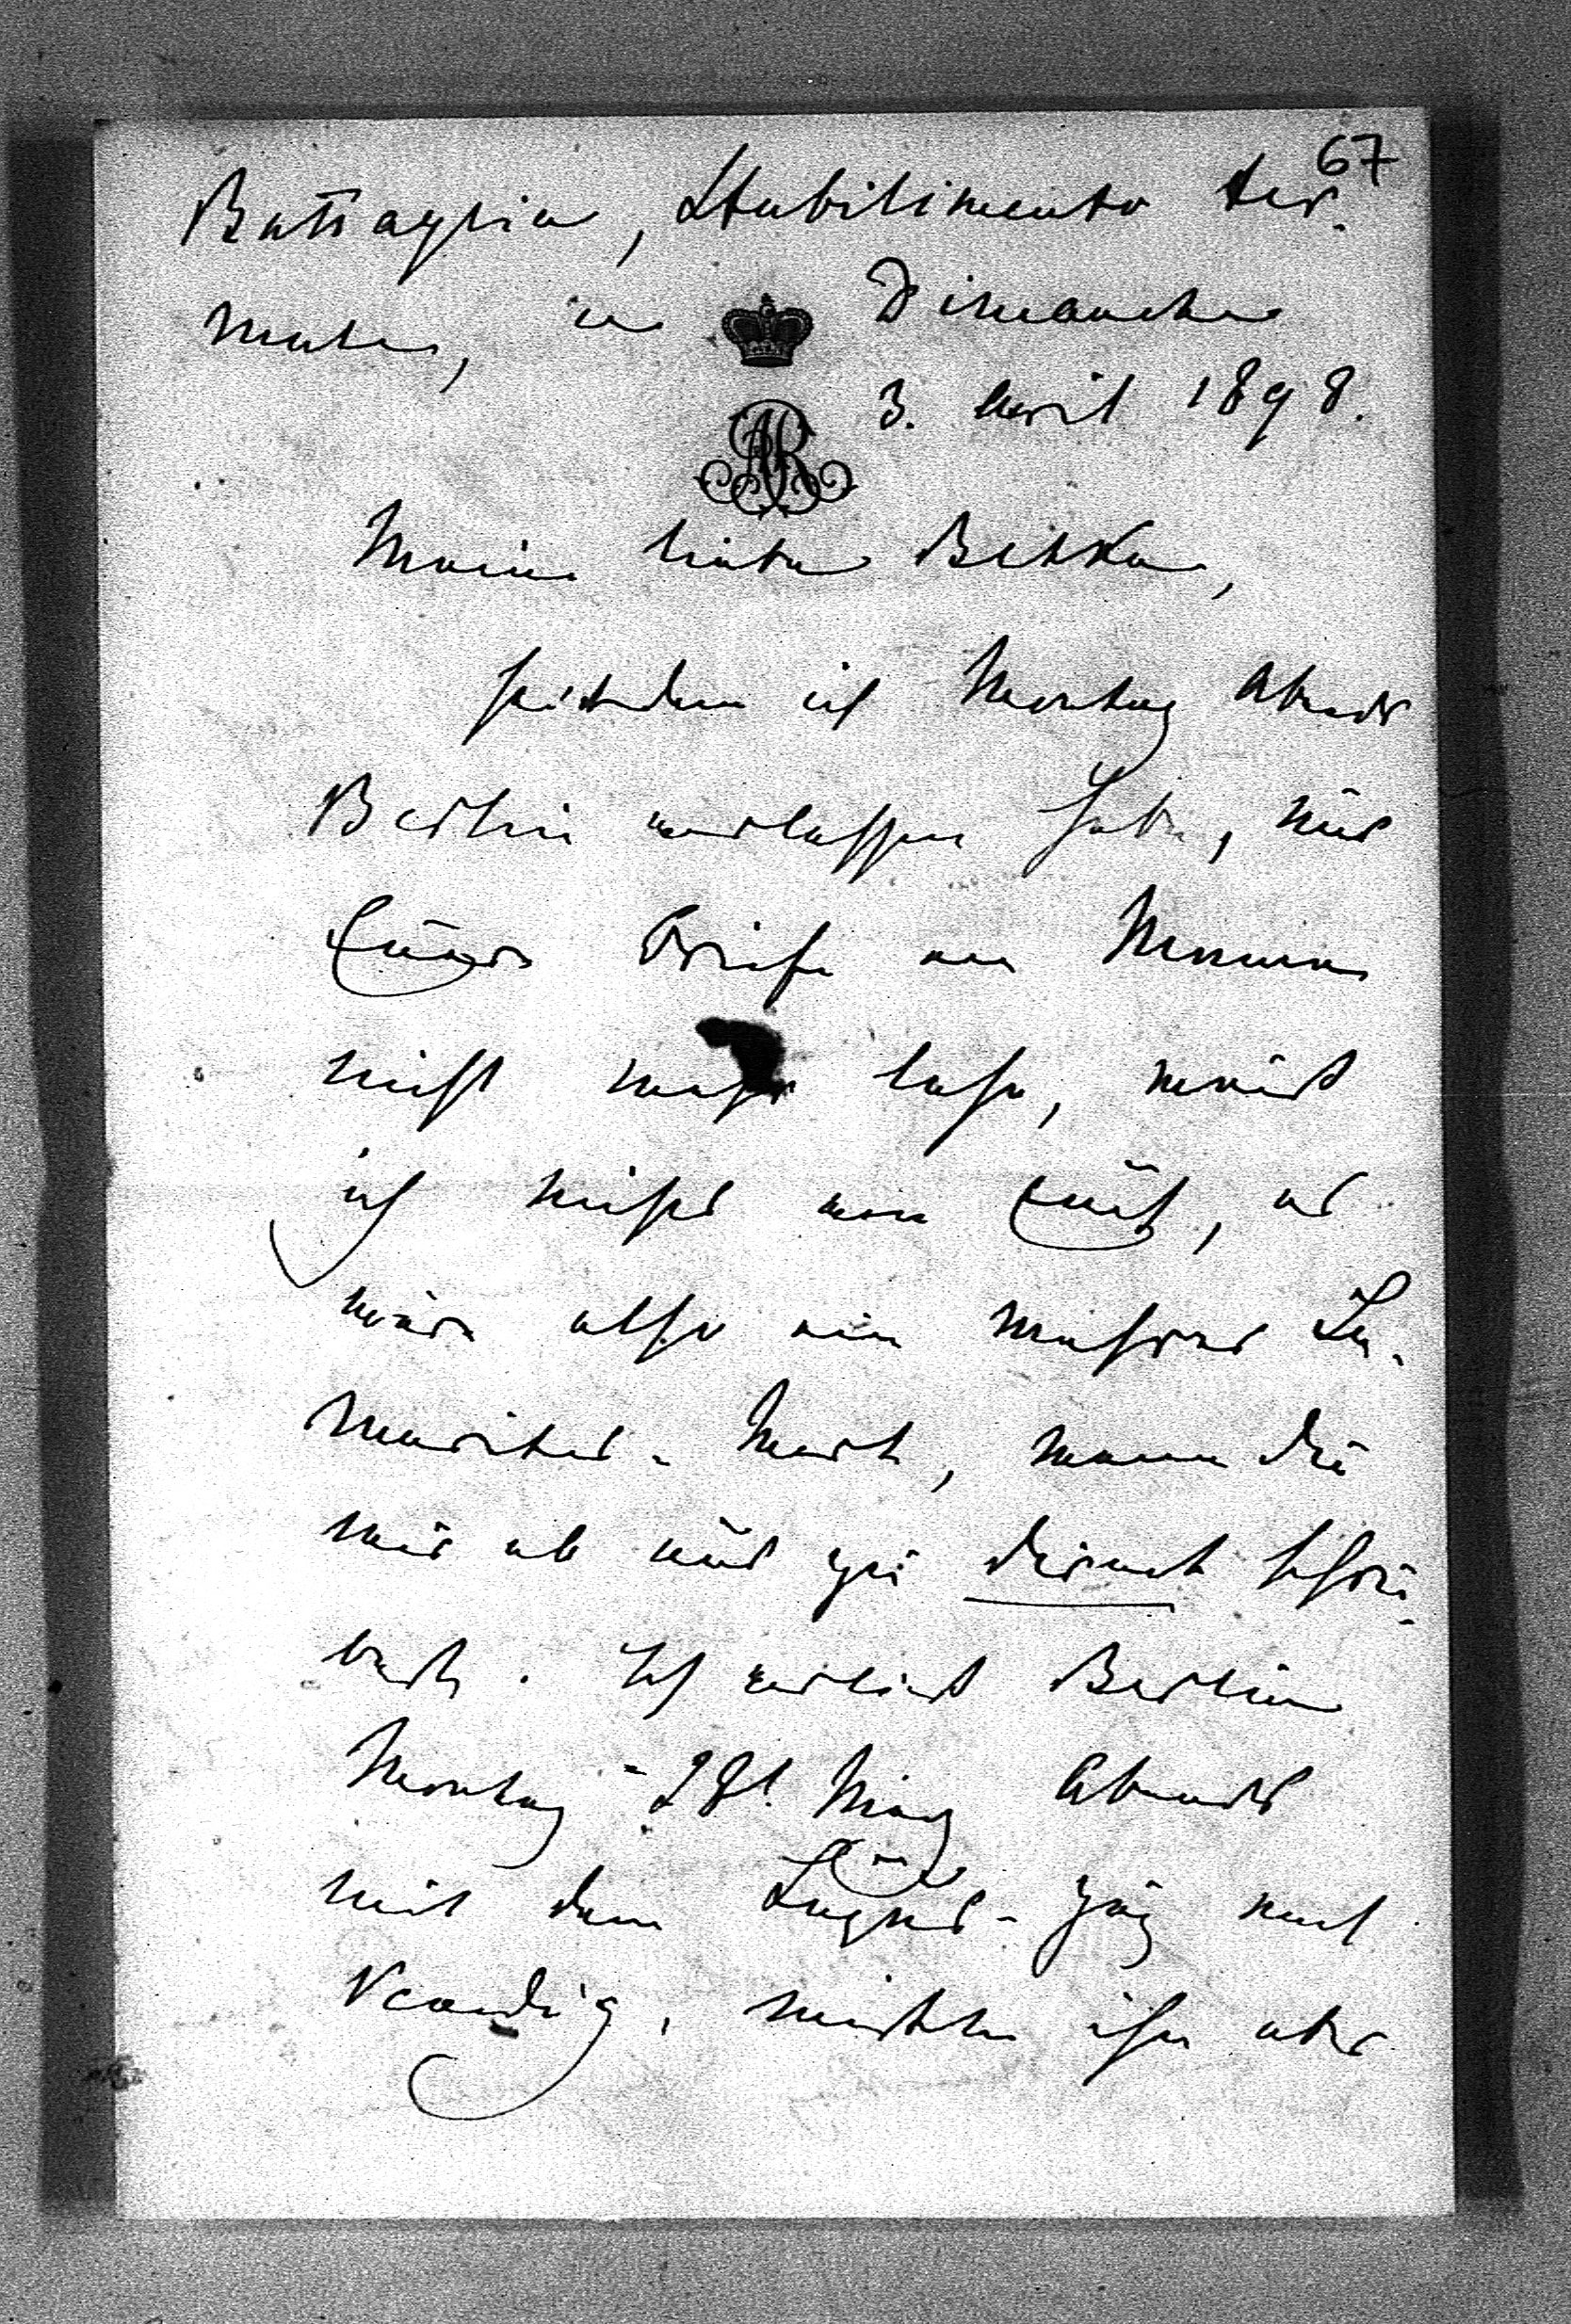 67
Battaglia, Stabilimento ter-
male, ce Dimanche
3. Avril 1898.
AR
Meine liebe Bekka,
seitdem ich Montag Abends
Berlin verlassen habe, und
Eüere Briefe an
nicht mehr lese, weiß
ich nichts von Eüch, es
wäre also ein wahres Sa-
mariter-Werk, wenn Dü
mir ab und zü direct schrie-
best. Ich verließ Berlin
Montag 28t. März Abends
mit dem Luxus-Züg nach
Venedig, mußte ihn aber